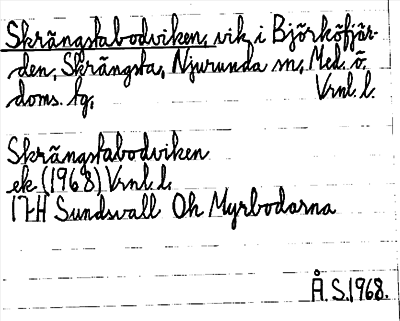 Skrängstabodviken, vik i Björköfjär-
den, Skrängsta, Njurunda sn, Med. ö.
doms. tg, Vrnl. l.
Skrängstabodviken
ek (1968) Vrnl. l.
17H Sundsvall Ok Myrbodarna
Å.S. 1968.